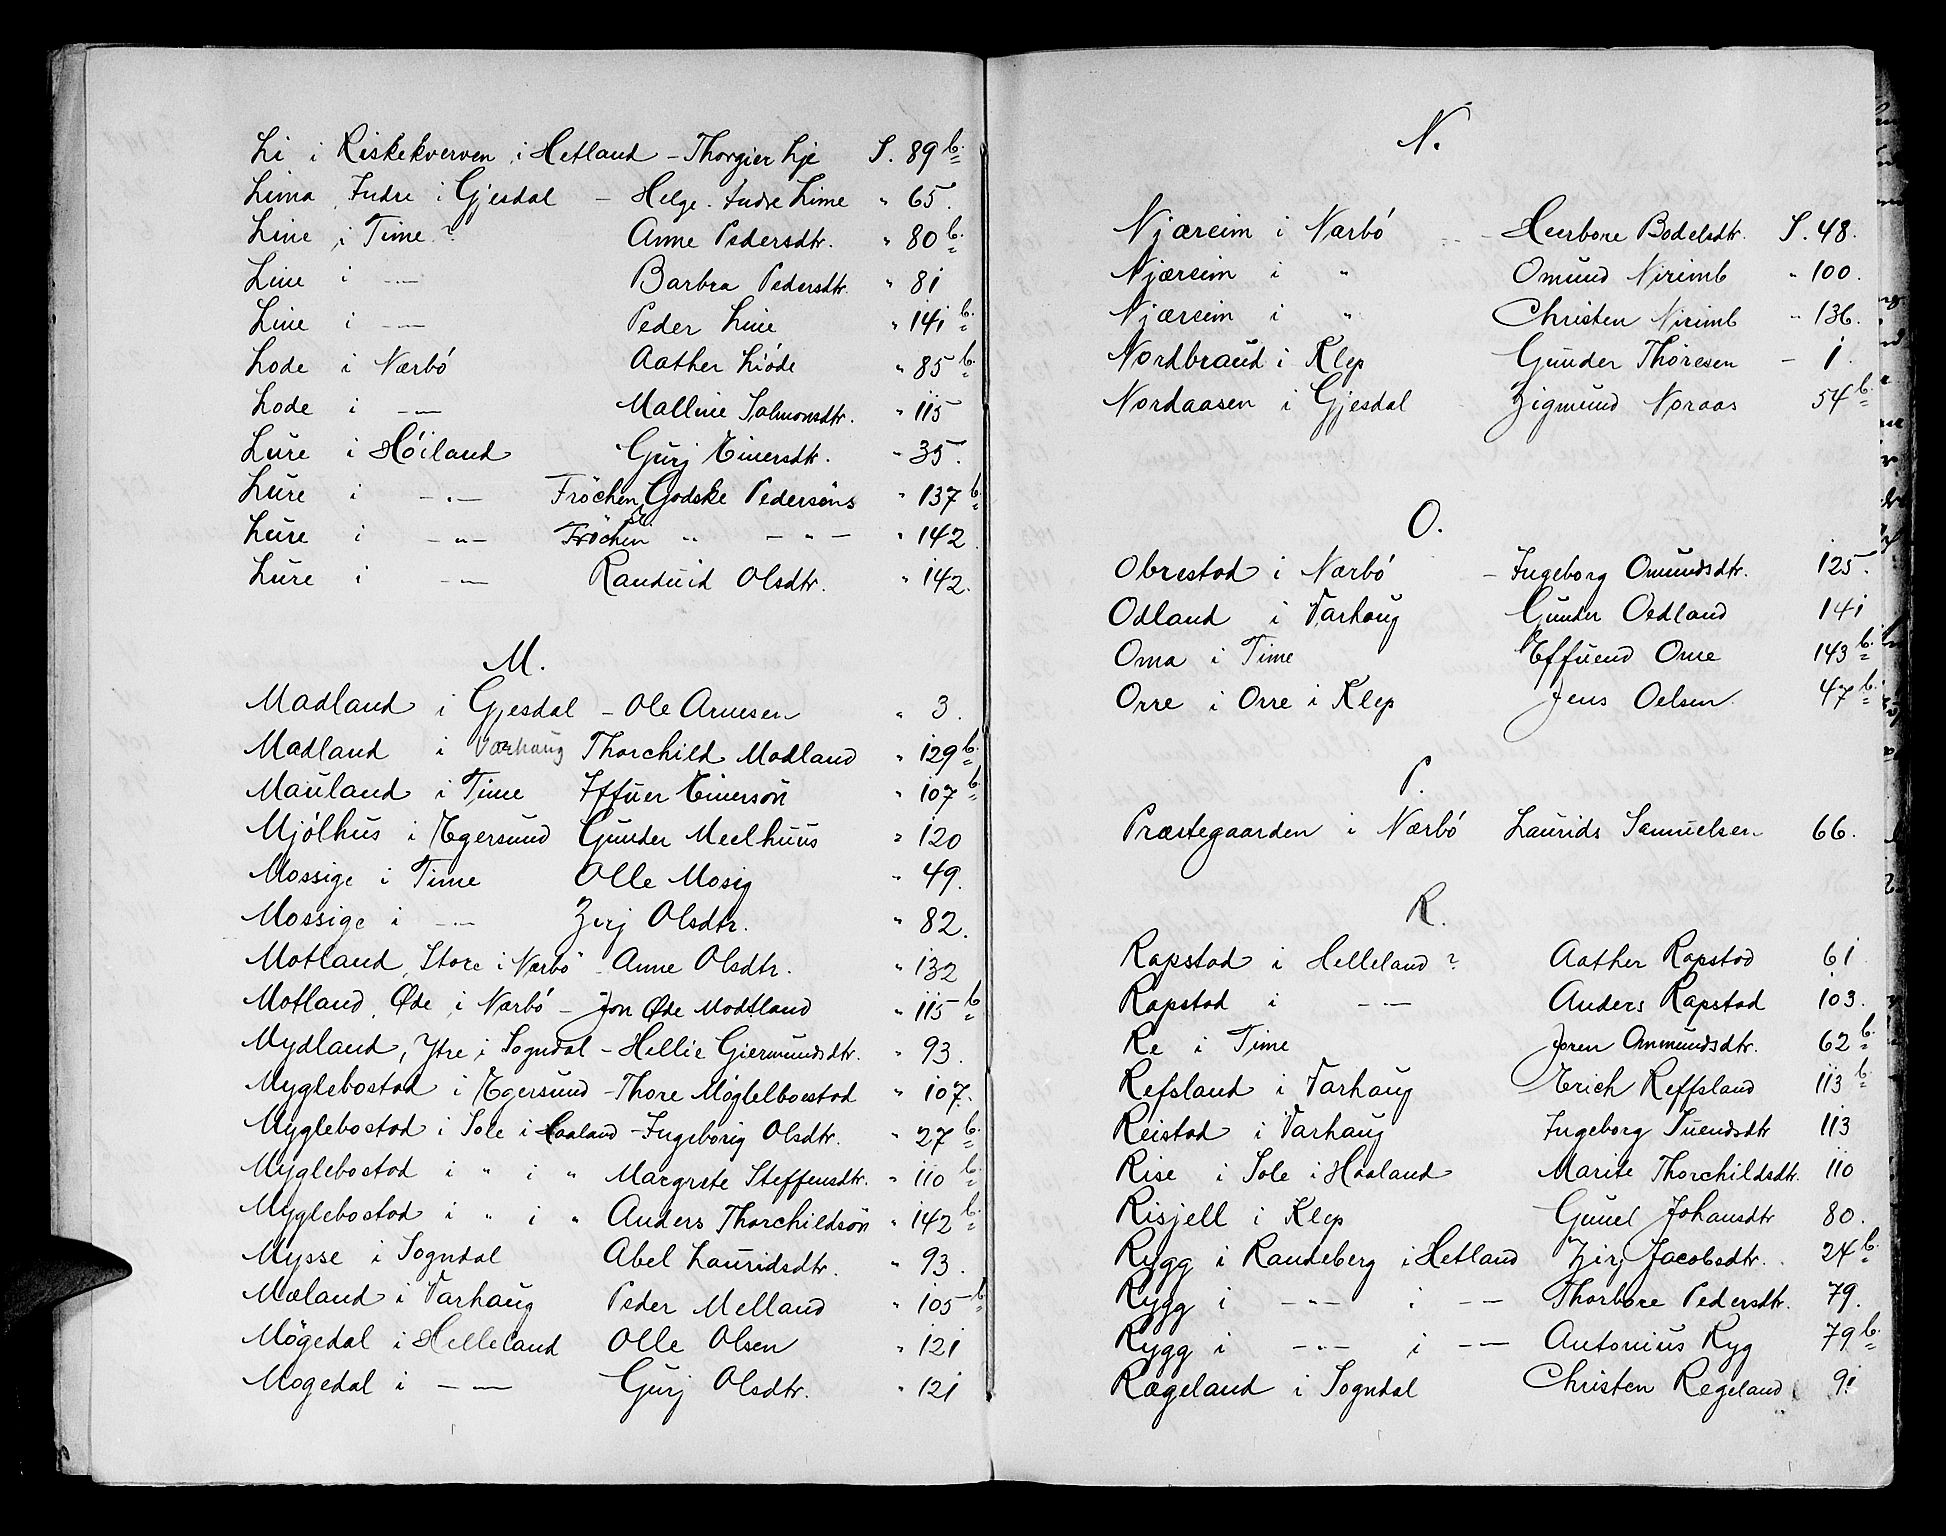 Li i Riskekverven i Hetland - Thorgier Lje S. 89 b.
Lima, Indre i Gjesdal - Helge Indre Lime " 65.
Line i Time? Anne Pedersdtr. " 80 b.
Line i -"- Barbra Pedersdtr. " 81
Line i -"- Peder Line " 141 b.
Lode i Nærbö Aather Liöde " 85 b.
Lode i -"- Malline Salmonsdtr. " 115
Lure i Höiland Gurj Einersdtr. " 35.
Lure i -"- Fröchen Godske Pedersöns " 137 b.
Lure i -"- Fröchen " -"- " 142.
Lure i -"- Randuid Olsdtr. " 142.
M.
Madland i Gjesdal - Ole Arnesen " 3.
Madland i Varhaug Thorchild Modland " 129 b.
Mauland i Time Iffuer Einersön " 107 b.
Mjölhus i Egersund Gunder Meelhuus " 120
Mossige i Time Olle Mosig " 49.
Mossige i -"- Zirj Olsdtr. " 82.
Motland, Store i Nærbö - Anne Olsdtr. " 132
Motland, Øde, i Nærbö - Jon Øde Modtland " 115 b
Mydland, Ytre, i Sogndal - Hellie Giermundsdtr. " 93.
Myglebostad i Egersund - Thore Möglelboestad " 107.
Myglebostad i Sole i Haaland - Ingeborig Olsdtr. " 27 b.
Myglebostad i " i " Margrete Steffensdtr. " 110 b.
Myglebostad i " i " Anders Thorchildsön " 142 b.
Mysse i Sogndal Abel Lauridsdtr. " 93.
Mæland i Varhaug Peder Melland " 105 b
Mögedal i Helleland Olle Olsen " 121
Mögedal i -"- Gurj Olsdtr. " 121
N.
Njæreim i Nærbö - Heerbore Bodelsdtr. S. 48.
Njæreim i " Omund Nirimb " 100.
Njæreim i " Christen Nirimb " 136.
Nordbraud i Klep Gunder Thoresen - 1.
Nordaasen i Gjesdal Zigmund Noraas 54 b.
O.
Obrestad i Nærbö - Ingeborg Omundsdtr. 125.
Odland i Varhaug Gunder Oedland 141
Oma i Time Effuend Ome 143 b.
Orre i Orre i Klep Jens Oelsen. 47 b.
P.
Præstegaarden i Nærbö Laurids Samuelsen 66.
R.
Rapstad i Helleland? Aather Rapstad 61
Rapstad i -"- Anders Rapstad 103.
Re i Time Joren Ommundsdtr. 62 b.
Refsland i Varhaug Erich Reffsland 113 b.
Reistad i Varhaug Ingeborg Suendsdtr 113
Rise i Sole i Haaland Marite Thorchildsdtr. 110
Risjell i Klep Gunel Johansdtr 80.
Rygg i Randeberg i Hetland Zirj Jacobsdtr. 24 b.
Rygg i -"- i -"- Thorbore Pedersdtr. 79.
Rygg i -"- i -"- Antonius Ryg 79 b.
Rægeland i Sogndal Christen Regeland 91